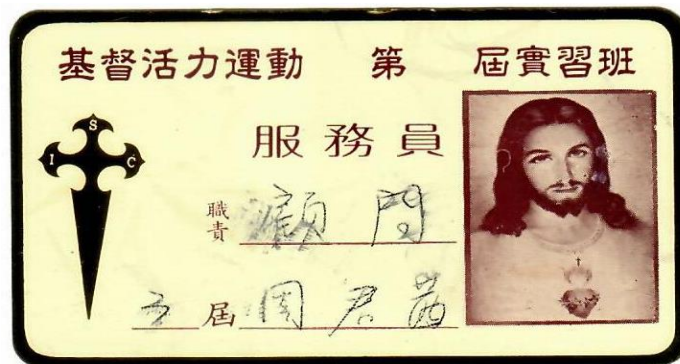 基督活力運動 第 屆實習班
S
I C
服務員
職責 顧問
五 屆 周君